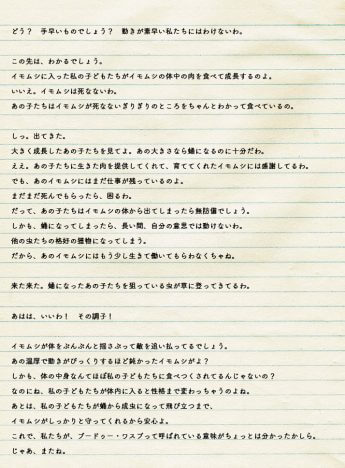 どう？　手早いものでしょう？　動きが素早い私たちにはわけないわ。
この先は、わかるでしょう。
イモムシに入った私の子どもたちがイモムシの体中の肉を食べて成長するのよ。
いいえ。イモムシは死なないわ。
あの子たちはイモムシが死なないぎりぎりのところをちゃんとわかって食べているの。
しっ。出てきた。
大きく成長したあの子たちを見てよ。あの大きさなら蛹になるのに十分だわ。
ええ。あの子たちに生きた肉を提供してくれて、育ててくれたイモムシには感謝してるわ。
でも、あのイモムシにはまだ仕事が残っているのよ。
まだまだ死んでもらったら、困るわ。
だって、あの子たちはイモムシの体から出てしまったら無防備でしょう。
しかも、蛹になってしまったら、長い間、自分の意思では動けないわ。
他の虫たちの格好の獲物になってしまう。
だから、あのイモムシにはもう少し生きて働いてもらわなくちゃね。
来た来た。蛹になったあの子たちを狙っている虫が草に登ってきてるわ。
あはは、いいわ！　その調子！
イモムシが体をぶんぶんと揺さぶって敵を追い払ってるでしょう。
あの温厚で動きがびっくりするほど鈍かったイモムシがよ？
しかも、体の中身なんてほぼ私の子どもたちに食べつくされてるんじゃないの？
なのにね、私の子どもたちが体内に入ると性格まで変わっちゃうのよね。
あとは、私の子どもたちが蛹から成虫になって飛び立つまで、
イモムシがしっかりと守ってくれるから安心よ。
これで、私たちが、ブードゥー・ワスプって呼ばれている意味がちょっとは分かったかしら。
じゃあ、またね。